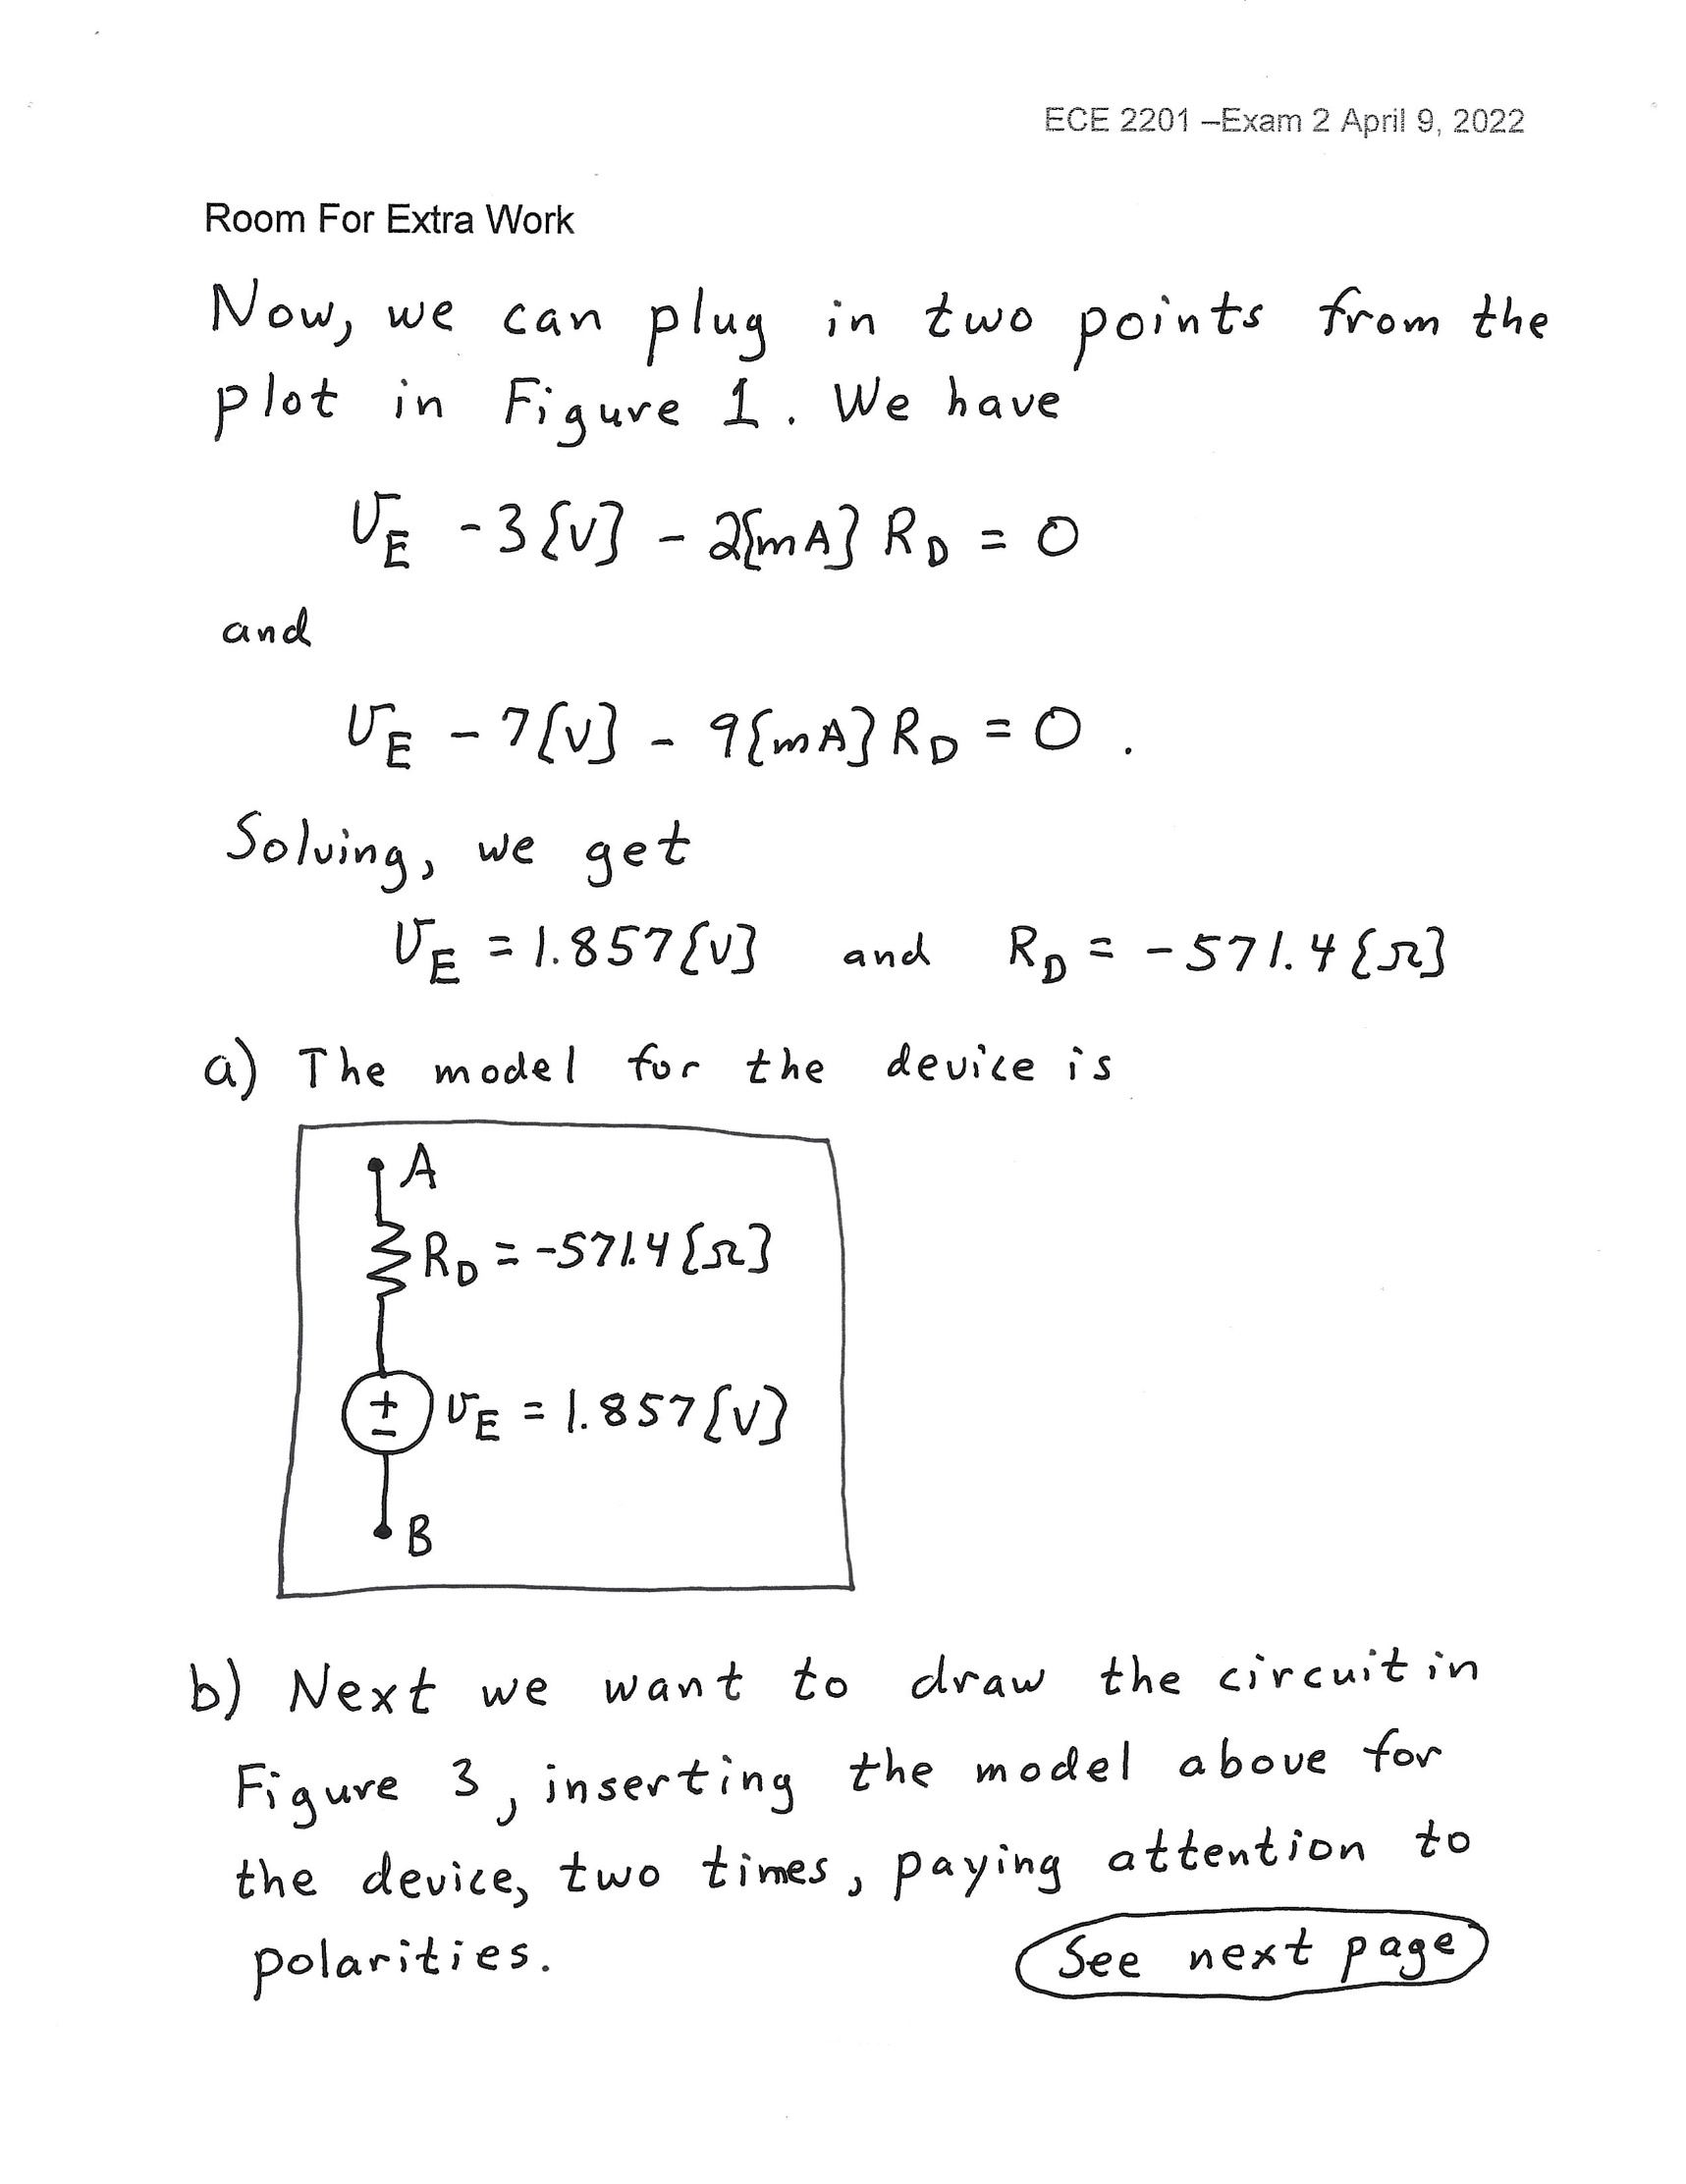 ECE 2201 –Exam 2 April 9, 2022
Room For Extra Work
Now, we can plug in two points from the
plot in Figure 1. We have
v_E - 3{V} - 2{mA} R_D = 0
and
v_E - 7{V} - 9{mA} R_D = 0.
Solving, we get
v_E = 1.857{V} and R_D = -571.4{Ω}
a) The model for the device is
A
R_D = -571.4{Ω}
± v_E = 1.857{V}
B
b) Next we want to draw the circuit in
Figure 3, inserting the model above for
the device, two times, paying attention to
polarities.
See next page